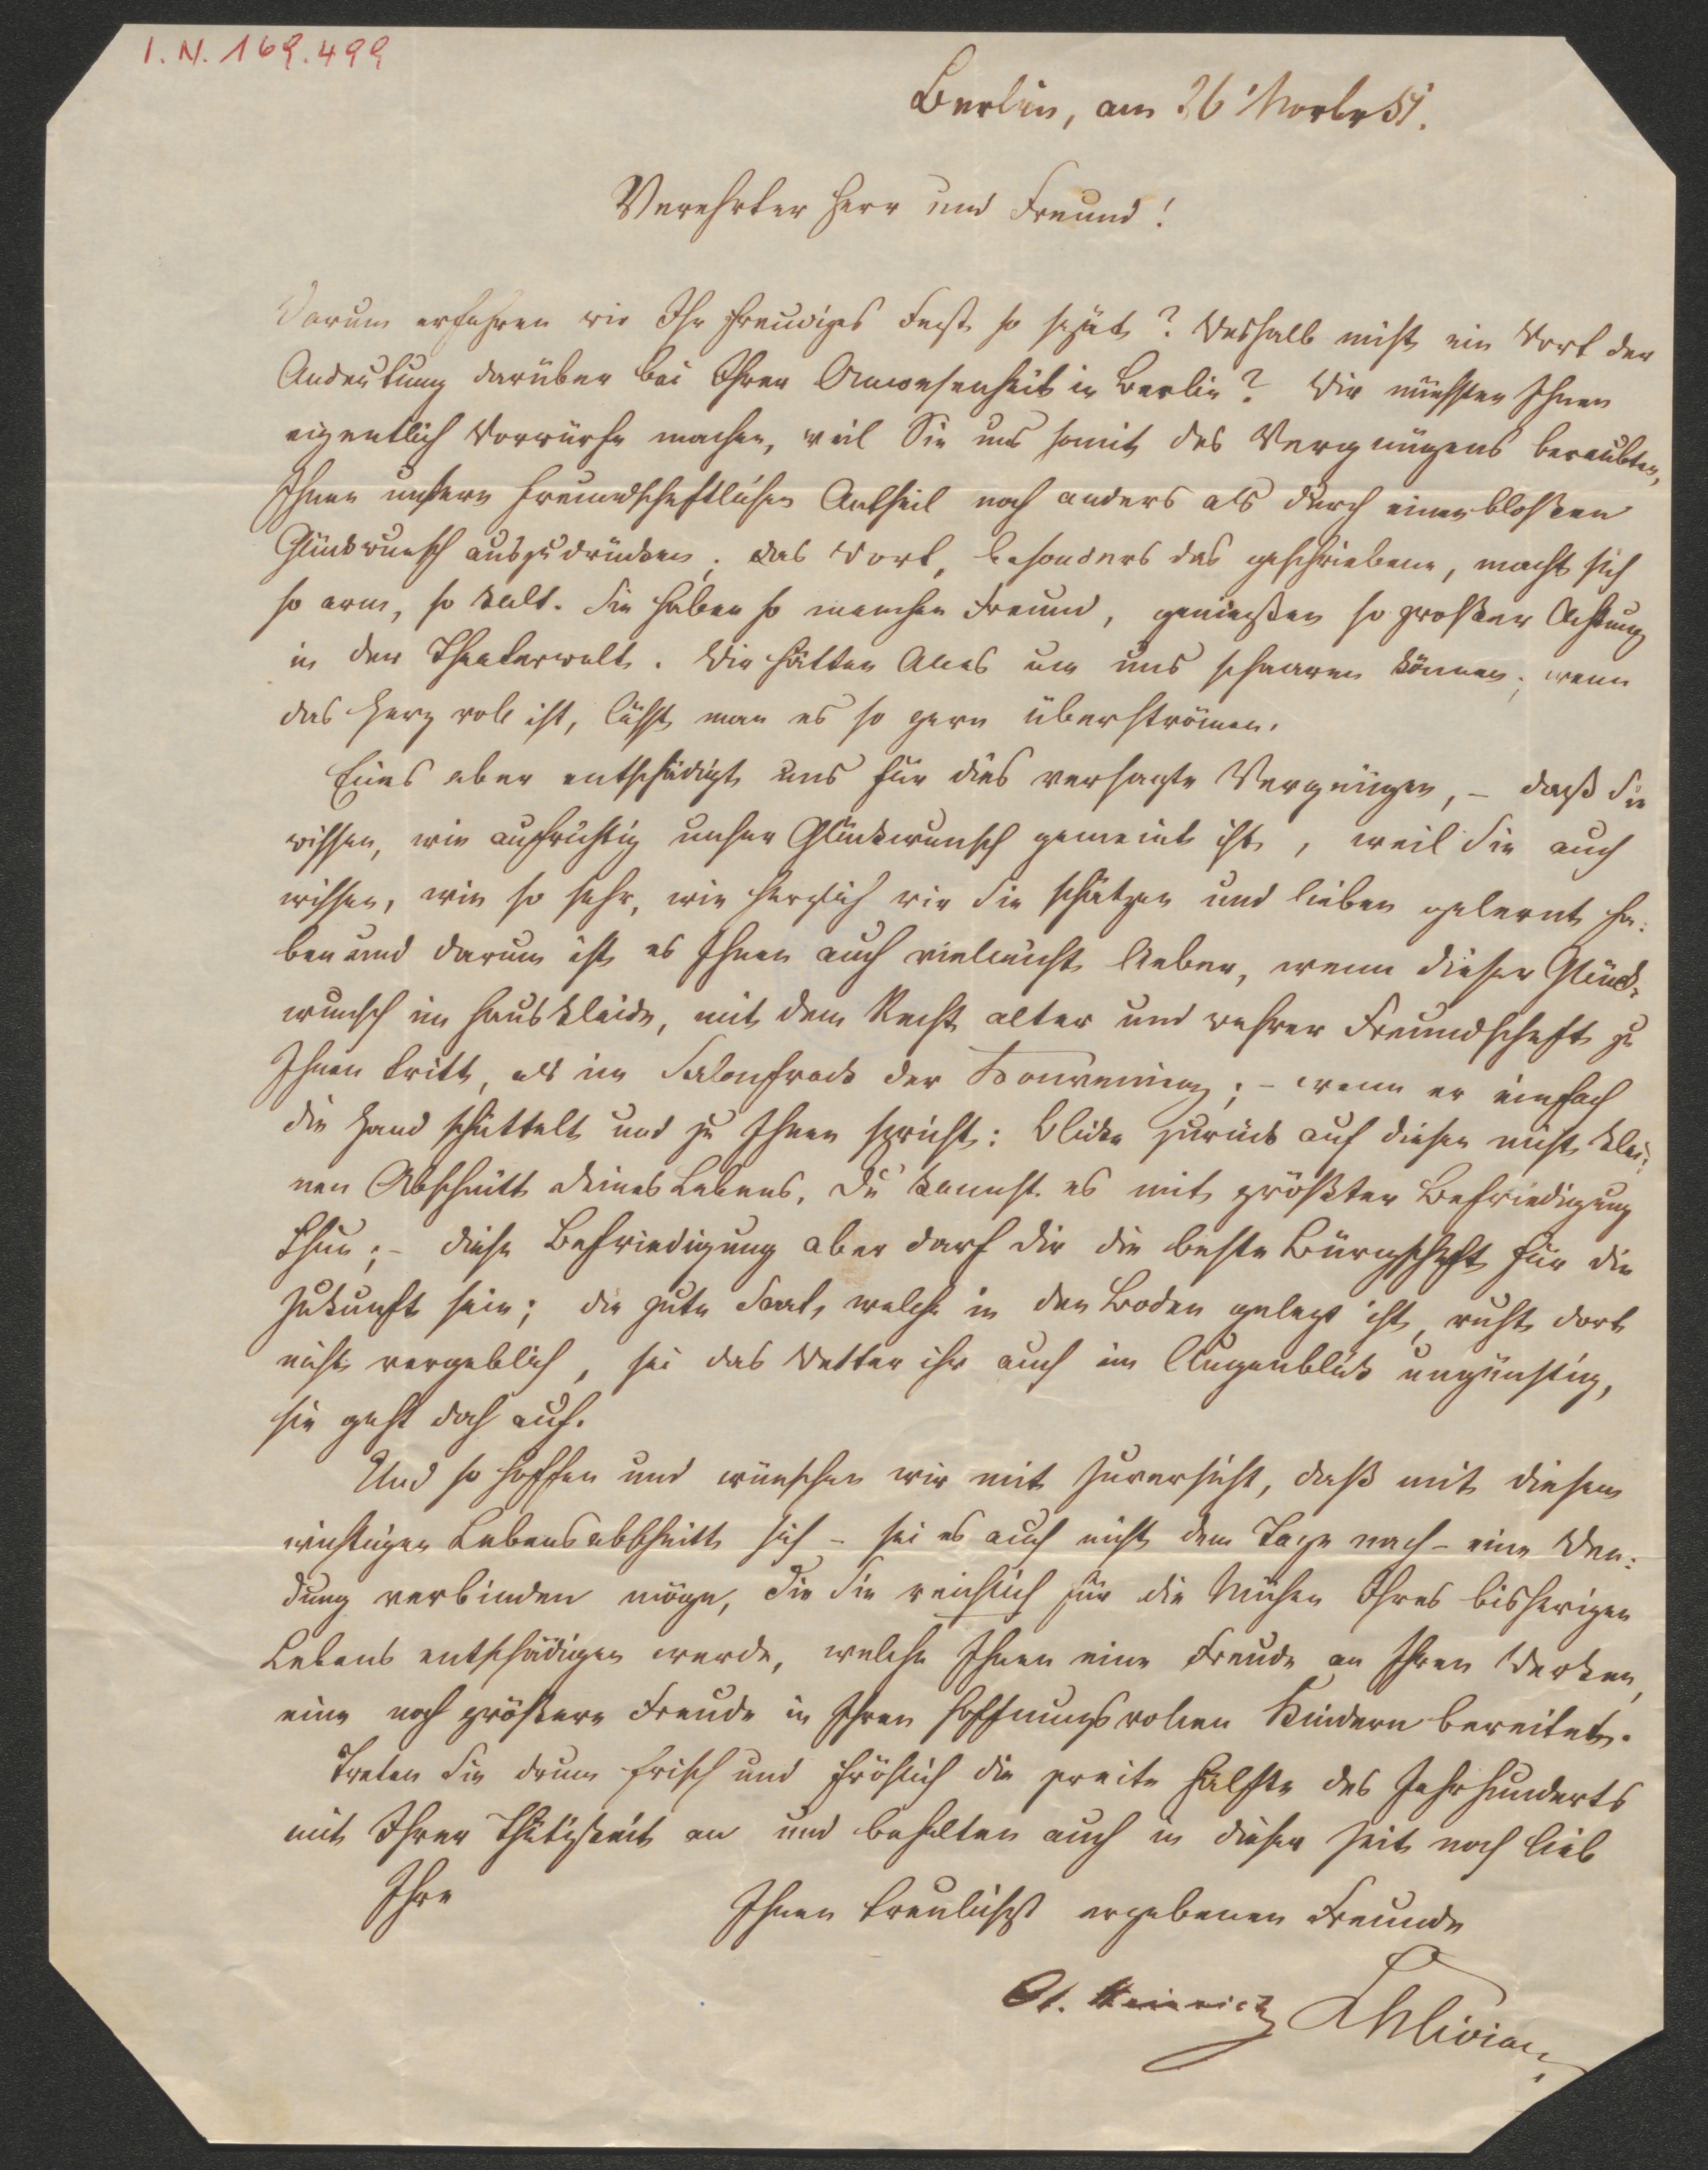 I. N. 169.499
Berlin, am 26' Novbr 51.
Verehrter Herr und Freund!
Warum erfahren wir Ihr freudiges Fest so spät? Weshalb nicht ein Wort der
Andeutung darüber bei Ihrer Anwesenheit in Berlin? Wir müssten Ihnen
eigentlich Vorwürfe machen, weil Sie uns somit des Vergnügens beraubten,
Ihnen unsern freundschaftlichen Antheil noch anders als durch einen bloßen
Glückwunsch auszudrücken; das Wort, besonders das geschriebene, macht sich
so arm, so kalt. Sie haben so manchen Freund, genießen so großer Achtung
in der Theaterwelt. Wir hätten Alles um uns schaaren können; wenn
das Herz voll ist, läßt man es so gern überströmen.
Eines aber entschädigt uns für dies versagte Vergnügen, – daß Sie
wissen, wie aufrichtig unser Glückwunsch gemeint ist, weil Sie auch
wissen, wie so sehr, wie herzlich wir Sie schätzen und lieben gelernt ha:
ben und darum ist es Ihnen auch vielleicht lieber, wenn dieser Glück:
wunsch im Hauskleide, mit dem Recht alter und wahrer Freundschaft zu
Ihnen tritt, als im Salonfrack der Konvenienz; – wenn er einfach
die Hand schüttelt und zu Ihnen spricht: blicke zurück auf diesen nicht klei:
nen Abschnitt deines Lebens, Du kannst es mit größter Befriedigung
thun; – diese Befriedigung aber darf dir die beste Bürgschaft für die
Zukunft sein; die gute Saat, welche in den Boden gelegt ist, ruht dort
nicht vergeblich, sei das Wetter ihr auch im Augenblick ungünstig,
sie geht doch auf.
Und so hoffen und wünschen wir mit Zuversicht, daß mit diesem
wichtigen Lebensabschnitt sich – sei es auch nicht dem Tage nach – eine Wen:
dung verbinden möge, die Sie reichlich für die Mühen Ihres bisherigen
Lebens entschädigen werde, welche Ihnen eine Freude an Ihren Werken,
eine noch größere Freude in Ihren hoffnungsvollen Kindern bereitet.
Treten Sie drum frisch und fröhlich die zweite Hälfte des Jahrhunderts
mit Ihrer Thätigkeit an und behalten auch in dieser Zeit noch lieb
Ihre
Ihnen treulichst ergebenen Freunde
A. Heinrich